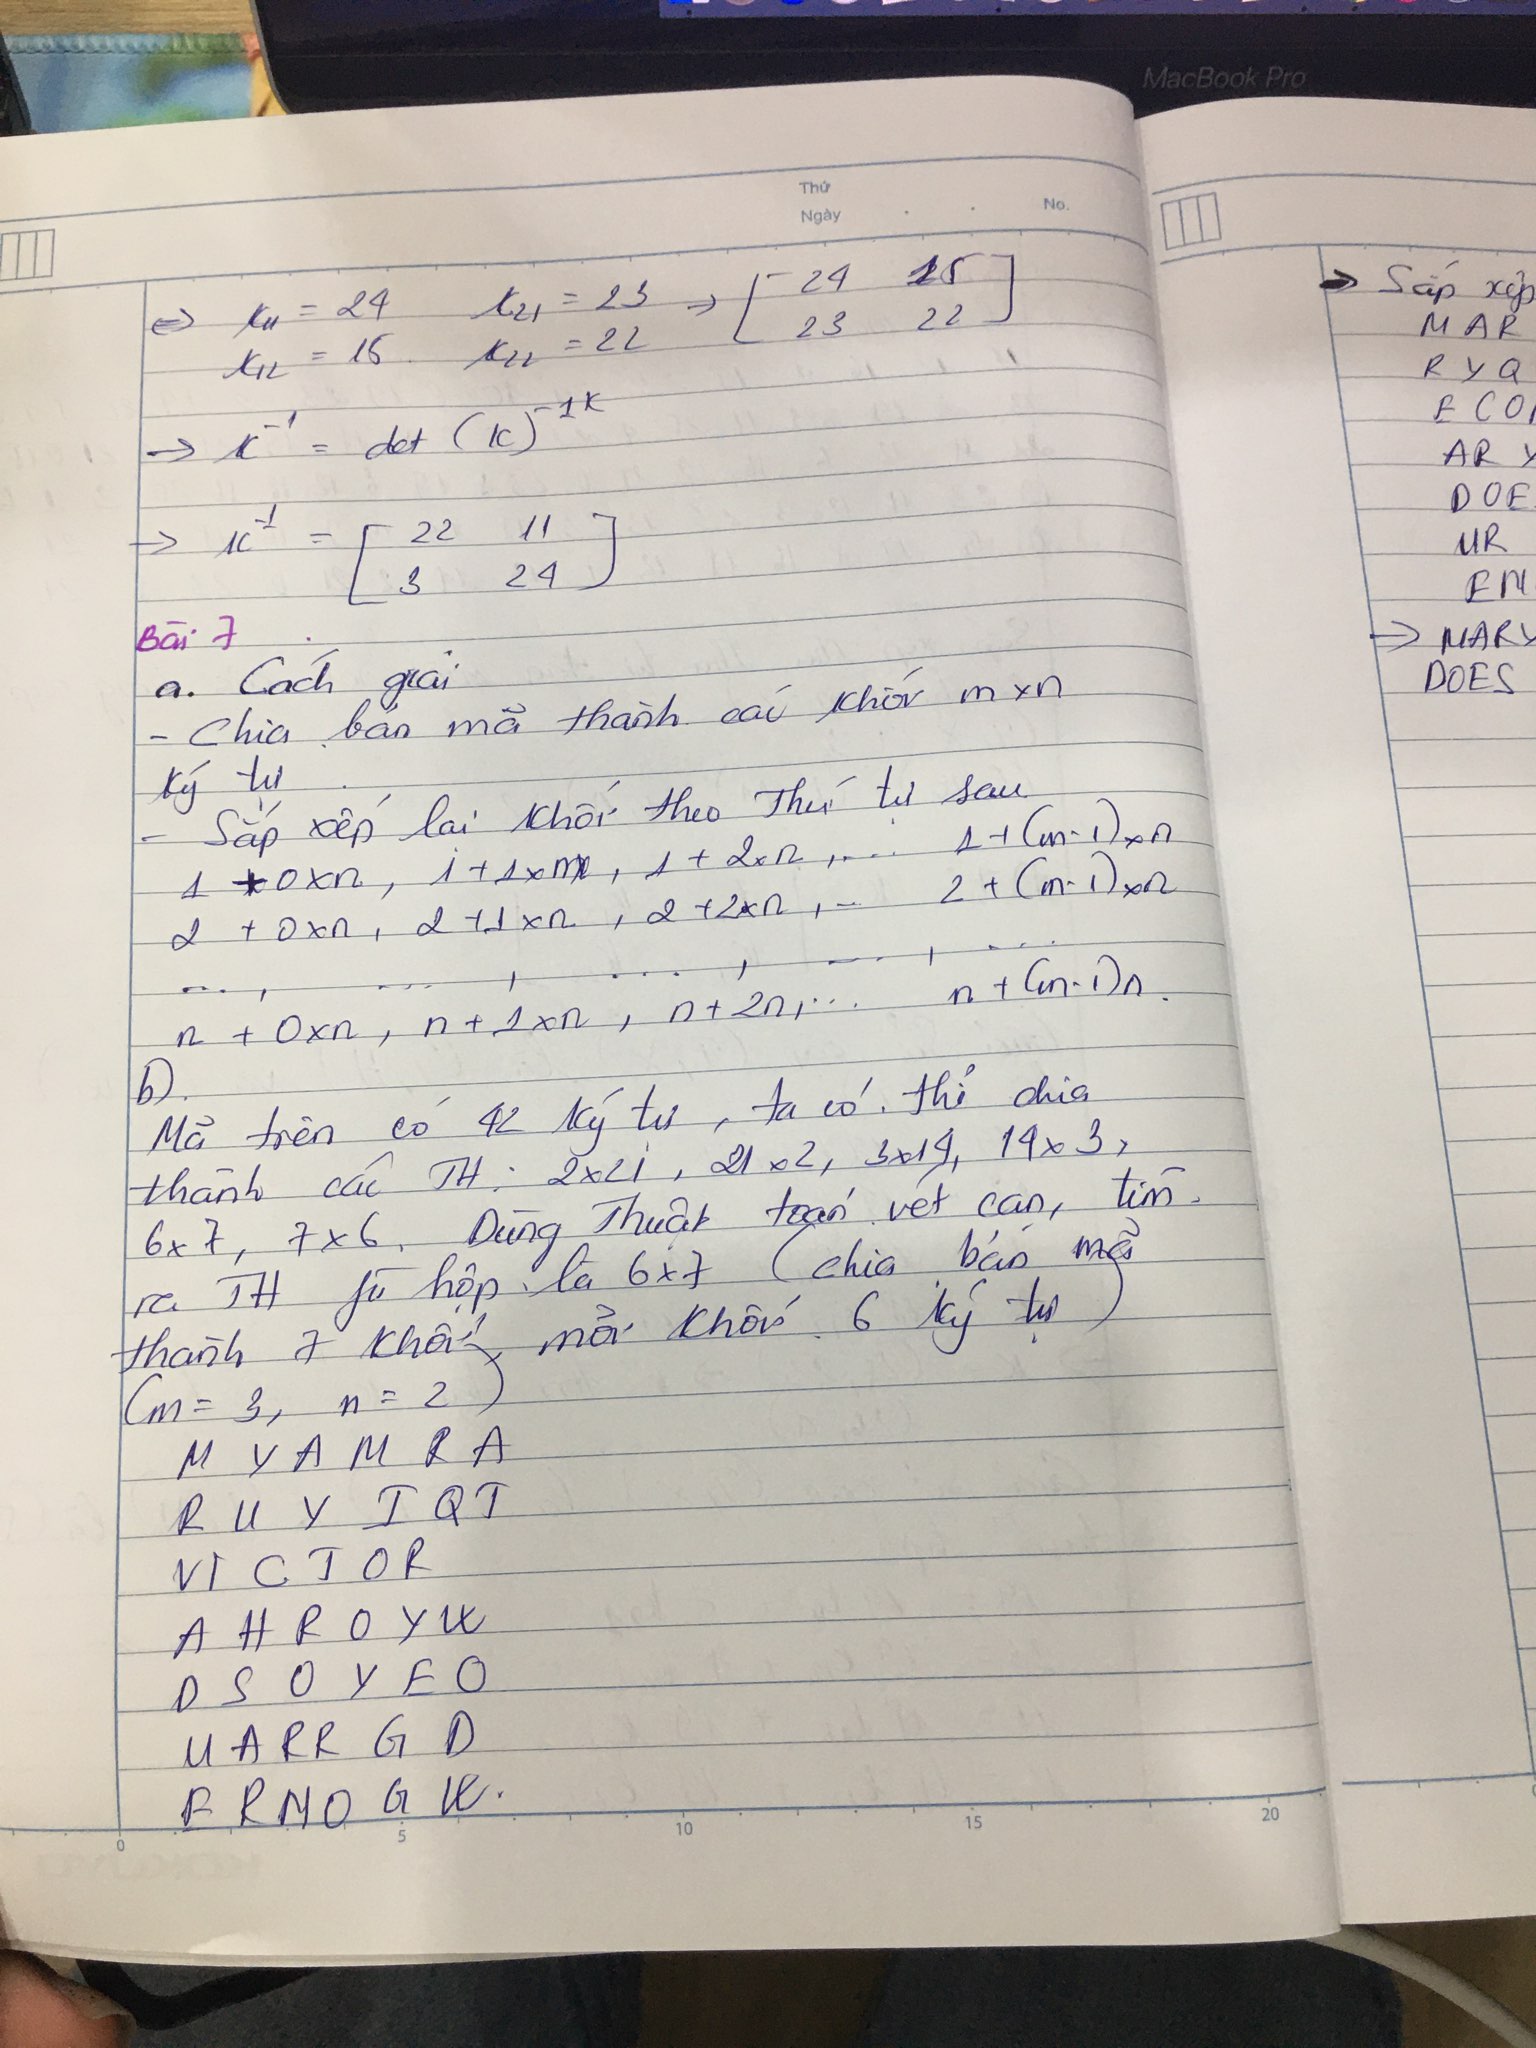 MacBook Pro
Thứ
Ngày . . No.
⇔ K11 = 24 K21 = 23 → [ 24 15
K12 = 15 K22 = 22 23 22 ]
→ K^-1 = det (K)^-1K
→ K^-1 = [ 22 11
3 24 ]
Bài 7
a. Cách giải
- Chia bản mã thành các khối m x n
ký tự
- Sắp xếp lại khối theo thứ tự sau
1 + 0 x n, 1 + 1 x n, 1 + 2 x n, ... 1 + (m-1) x n
2 + 0 x n, 2 + 1 x n, 2 + 2 x n, ... 2 + (m-1) x n
..., ..., ..., ..., ...
n + 0 x n, n + 1 x n, n + 2n, ... n + (m-1) n.
b).
Mã trên có 42 ký tự, ta có thể chia
thành các TH: 2x21, 21x2, 3x14, 14x3,
6x7, 7x6. Dùng thuật toán vét cạn, tìm
ra TH fù hợp là 6x7 (chia bản mã
thành 7 khối, mỗi khối 6 ký tự)
(m = 3, n = 2)
M Y A M R A
R U Y I Q T
V I C T O R
A H R O Y U
D S O Y E O
U A R R G D
E R N O G K.
0 5 10 15 20
→ Sắp xếp
MAR
RYQ
ARY
DOE
UR
EN
→ MARY
DOES